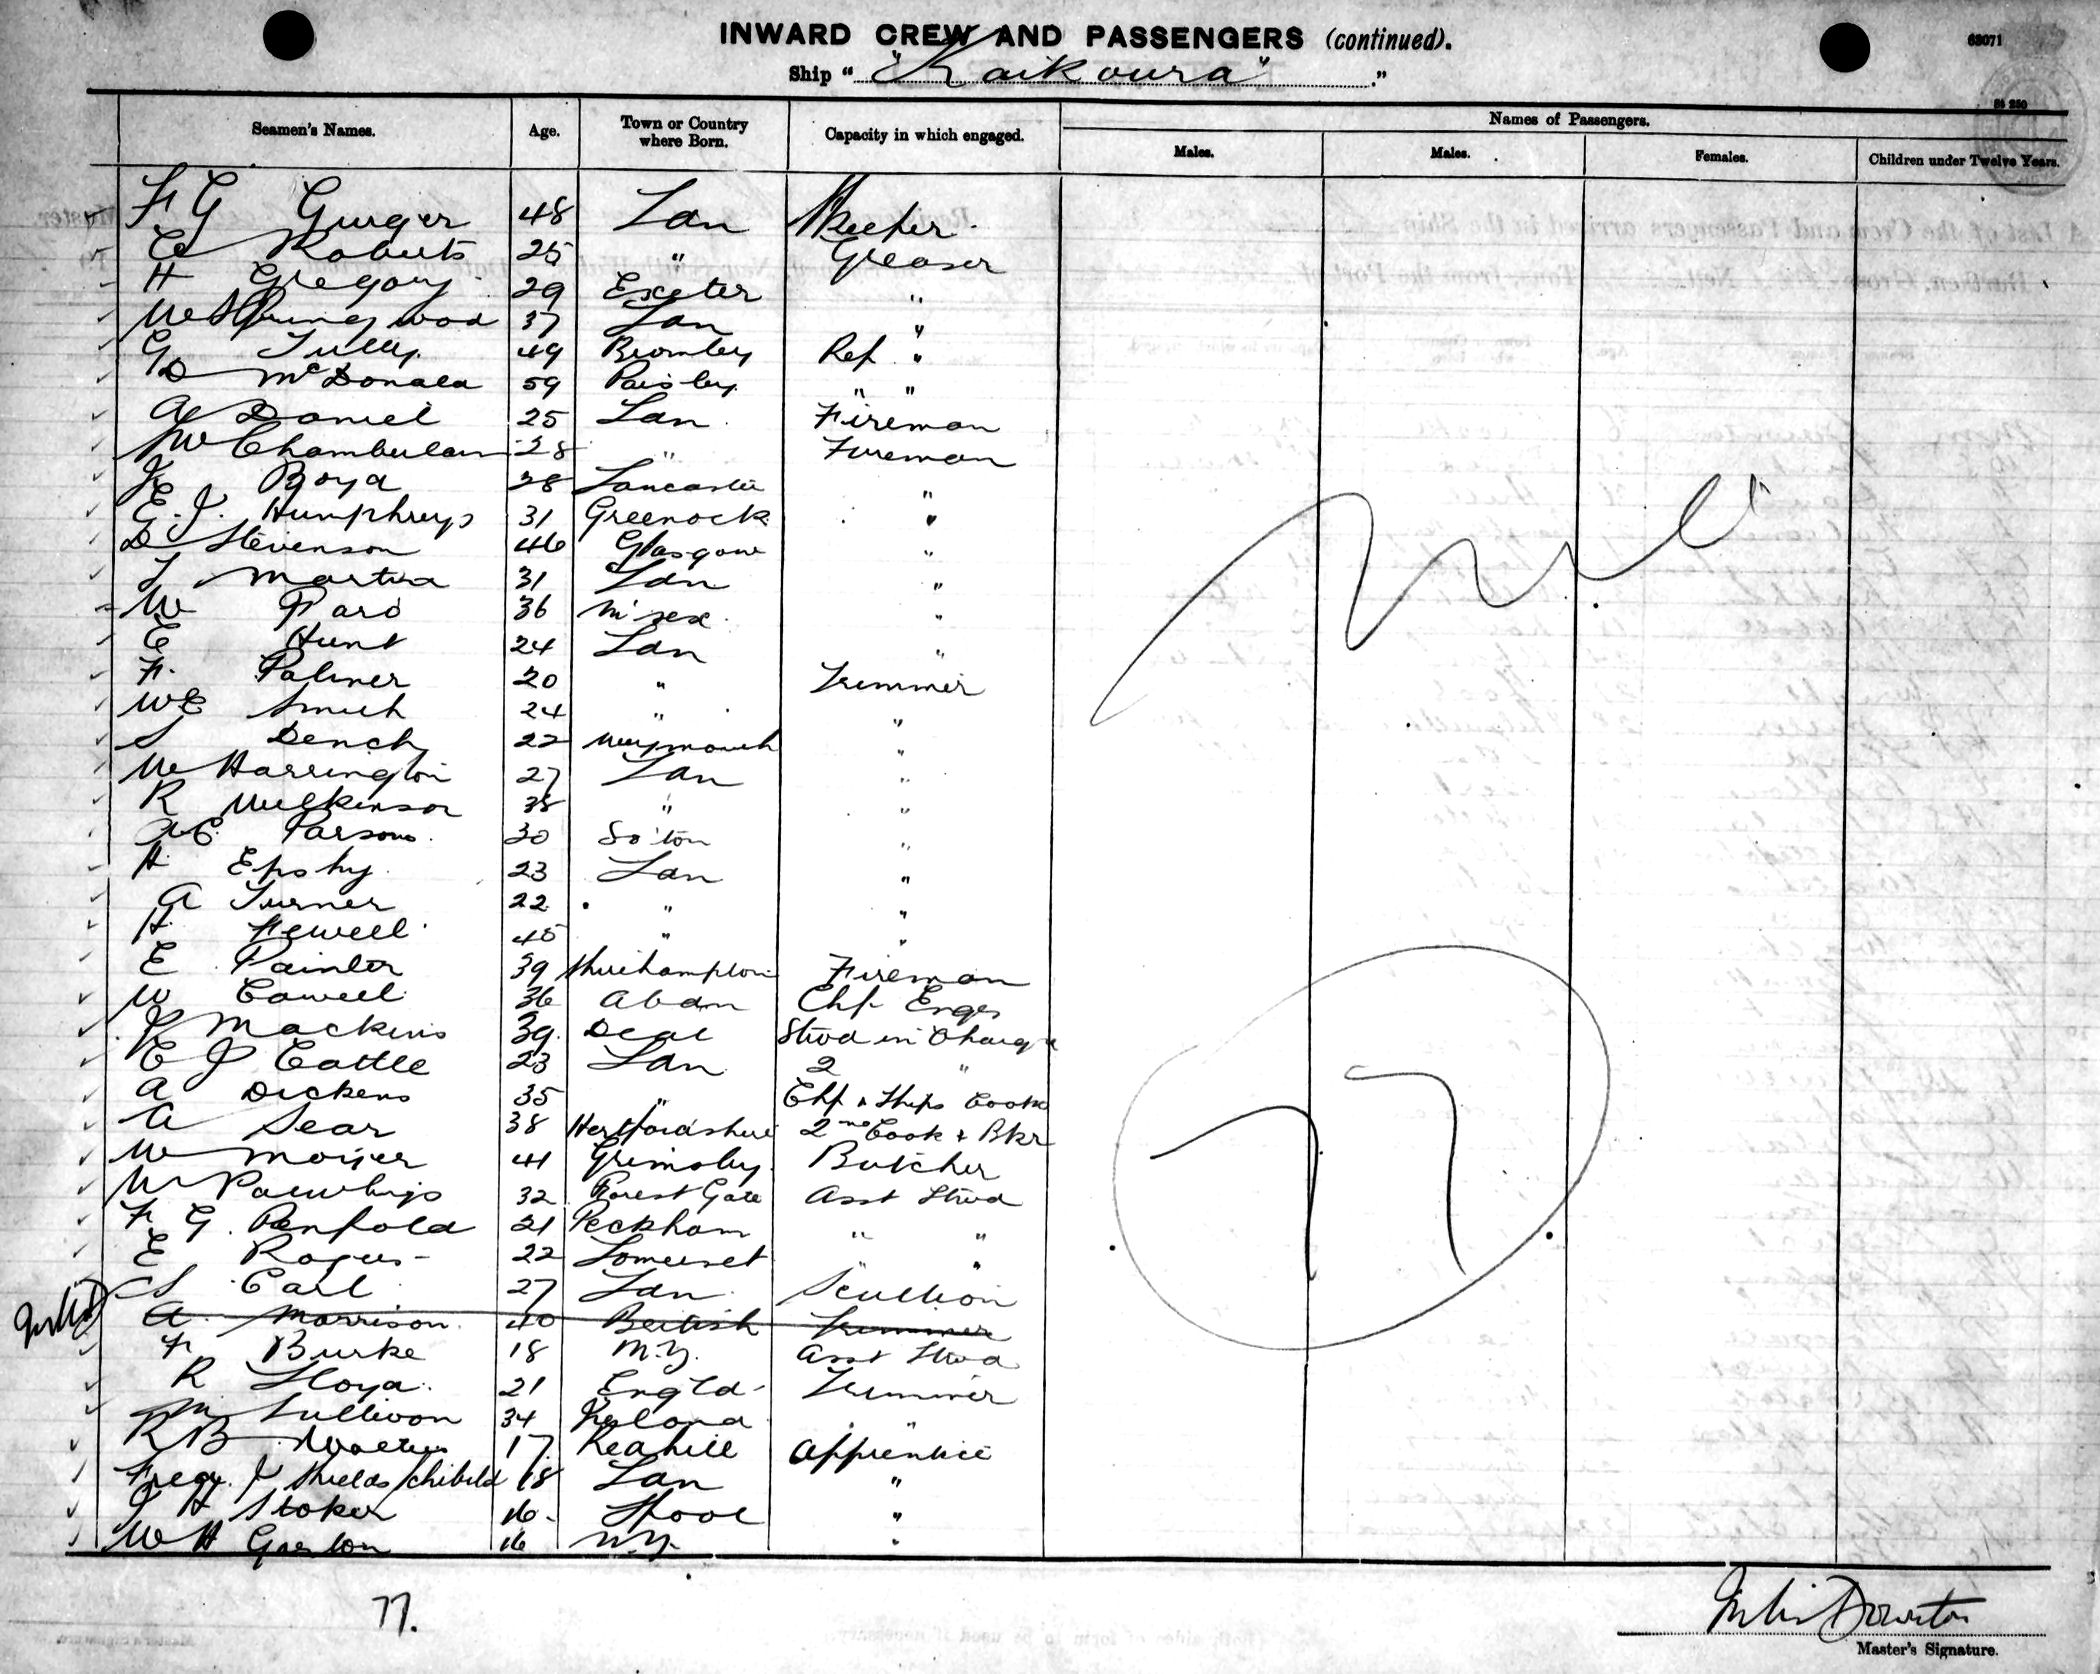 INWARD CREW AND PASSENGERS (continued).
63071
Ship " "Kaikoura" "
Seamen's Names. Age. Town or Country where Born. Capacity in which engaged. Names of Passengers.
Males. Males. Females. Children under Twelve Years.
F G Gurger 48 Lon
C Roberts 25 " Greaser
H Gregory 29 Exeter "
W Springwood 37 Lon "
G Tully 49 Bromley Ref "
D McDonald 59 Paisley " "
A Daniel 25 Lon Fireman
W Chamberlain 28 " Fireman
Boyd 28 Lancaster "
E. J. Humphreys 31 Greenock "
D Stevenson 46 Glasgow "
T Martin 31 Lon "
W 36 M'sex "
E Hunt 24 Lon "
F. Palmer 20 " Trimmer
WE Smith 24 " "
S Dench 22 Weymouth "
W Harrington 27 Lon "
R Wilkinson 38 " "
A.E. Parsons 30 So'ton "
H 23 Lon "
A Turner 22 " "
H Fewell 45 " "
E Painter 39 Fireman
W Cowell 36 Engr
J Mackins 39 Deal Stwd in Charge
E J Cattle 23 Lon 2 "
A Dickens 35 " & Ships Cook
A Sear 38 Hertfordshire 2nd Cook & Bkr
W 41 Grimsby Butcher
W 32 Forest Gate Asst Stwd
F. G. Penfold 21 Peckham " "
E Rogers 22 Somerset "
S Earl 27 Lon Scullion
A. Morrison 40 British Trimmer
F Burke 18 N.Z. Asst Stwd
R Lloyd 21 Engld Trimmer
M Sullivan 34 Ireland "
R B Walters 17 Redhill Apprentice
J Shields 18 Lon "
J H Stoker 16 "
W H Garton 16 N.Z. "
Nil
77
77.
Master's Signature.